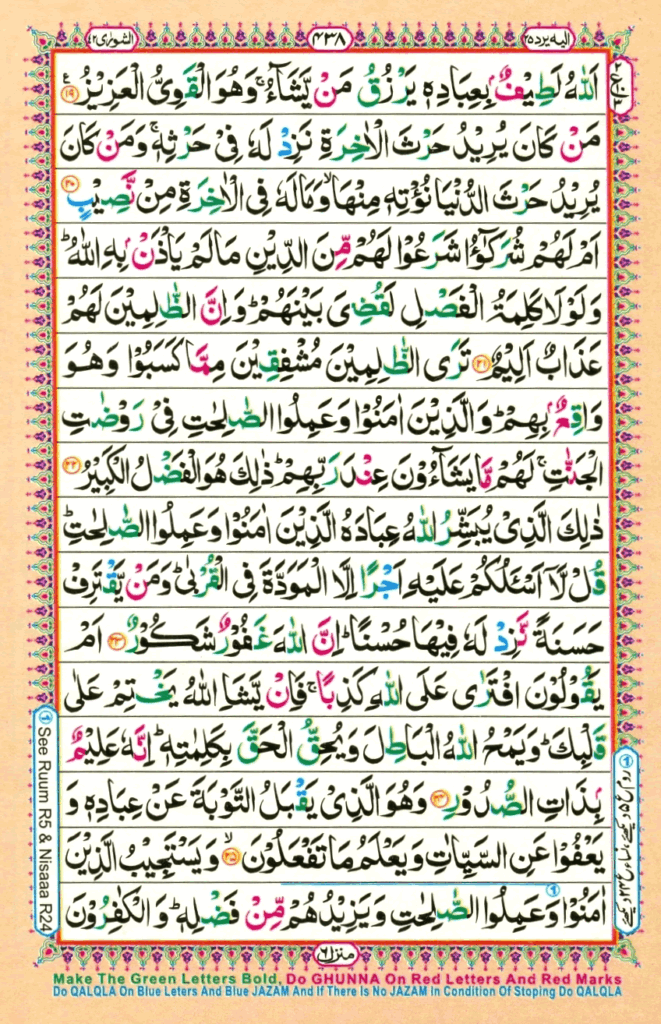 اليه يرد ٢٥
٤٣٨
الشورى ٤٢
اَللّٰهُ لَطِيْفٌۢ بِعِبَادِهٖ يَرْزُقُ مَنْ يَّشَآءُ ۚ وَهُوَ الْقَوِىُّ الْعَزِيْزُ ۝١٩
مَنْ كَانَ يُرِيْدُ حَرْثَ الْاٰخِرَةِ نَزِدْ لَهٗ فِىْ حَرْثِهٖ ۚ وَمَنْ كَانَ
يُرِيْدُ حَرْثَ الدُّنْيَا نُؤْتِهٖ مِنْهَا ۙ وَمَا لَهٗ فِى الْاٰخِرَةِ مِنْ نَّصِيْبٍ ۝٢٠
اَمْ لَهُمْ شُرَكٰٓؤُا شَرَعُوْا لَهُمْ مِّنَ الدِّيْنِ مَا لَمْ يَاْذَنْۢ بِهِ اللّٰهُ ؕ
وَلَوْلَا كَلِمَةُ الْفَصْلِ لَقُضِىَ بَيْنَهُمْ ؕ وَاِنَّ الظّٰلِمِيْنَ لَهُمْ
عَذَابٌ اَلِيْمٌ ۝٢١ تَرَى الظّٰلِمِيْنَ مُشْفِقِيْنَ مِمَّا كَسَبُوْا وَهُوَ
وَاقِعٌۢ بِهِمْ ؕ وَالَّذِيْنَ اٰمَنُوْا وَعَمِلُوا الصّٰلِحٰتِ فِىْ رَوْضٰتِ
الْجَنّٰتِ ۚ لَهُمْ مَّا يَشَآءُوْنَ عِنْدَ رَبِّهِمْ ؕ ذٰلِكَ هُوَ الْفَضْلُ الْكَبِيْرُ ۝٢٢
ذٰلِكَ الَّذِىْ يُبَشِّرُ اللّٰهُ عِبَادَهُ الَّذِيْنَ اٰمَنُوْا وَعَمِلُوا الصّٰلِحٰتِ ؕ
قُلْ لَّآ اَسْـَٔلُكُمْ عَلَيْهِ اَجْرًا اِلَّا الْمَوَدَّةَ فِى الْقُرْبٰى ؕ وَمَنْ يَّقْتَرِفْ
حَسَنَةً نَّزِدْ لَهٗ فِيْهَا حُسْنًا ؕ اِنَّ اللّٰهَ غَفُوْرٌ شَكُوْرٌ ۝٢٣ اَمْ
يَقُوْلُوْنَ افْتَرٰى عَلَى اللّٰهِ كَذِبًا ۚ فَاِنْ يَّشَاِ اللّٰهُ يَخْتِمْ عَلٰى
قَلْبِكَ ؕ وَيَمْحُ اللّٰهُ الْبَاطِلَ وَيُحِقُّ الْحَقَّ بِكَلِمٰتِهٖ ؕ اِنَّهٗ عَلِيْمٌۢ
بِذَاتِ الصُّدُوْرِ ۝٢٤ وَهُوَ الَّذِىْ يَقْبَلُ التَّوْبَةَ عَنْ عِبَادِهٖ وَ
يَعْفُوْا عَنِ السَّيِّاٰتِ وَيَعْلَمُ مَا تَفْعَلُوْنَ ۙ ۝٢٥ وَيَسْتَجِيْبُ الَّذِيْنَ
اٰمَنُوْا وَعَمِلُوا الصّٰلِحٰتِ وَيَزِيْدُهُمْ مِّنْ فَضْلِهٖ ؕ وَالْكٰفِرُوْنَ
① See Ruum R5 & Nisaaa R24
منزل ٦
Make The Green Letters Bold, Do GHUNNA On Red Letters And Red Marks
Do QALQLA On Blue Leters And Blue JAZAM And If There Is No JAZAM In Condition Of Stoping Do QALQLA